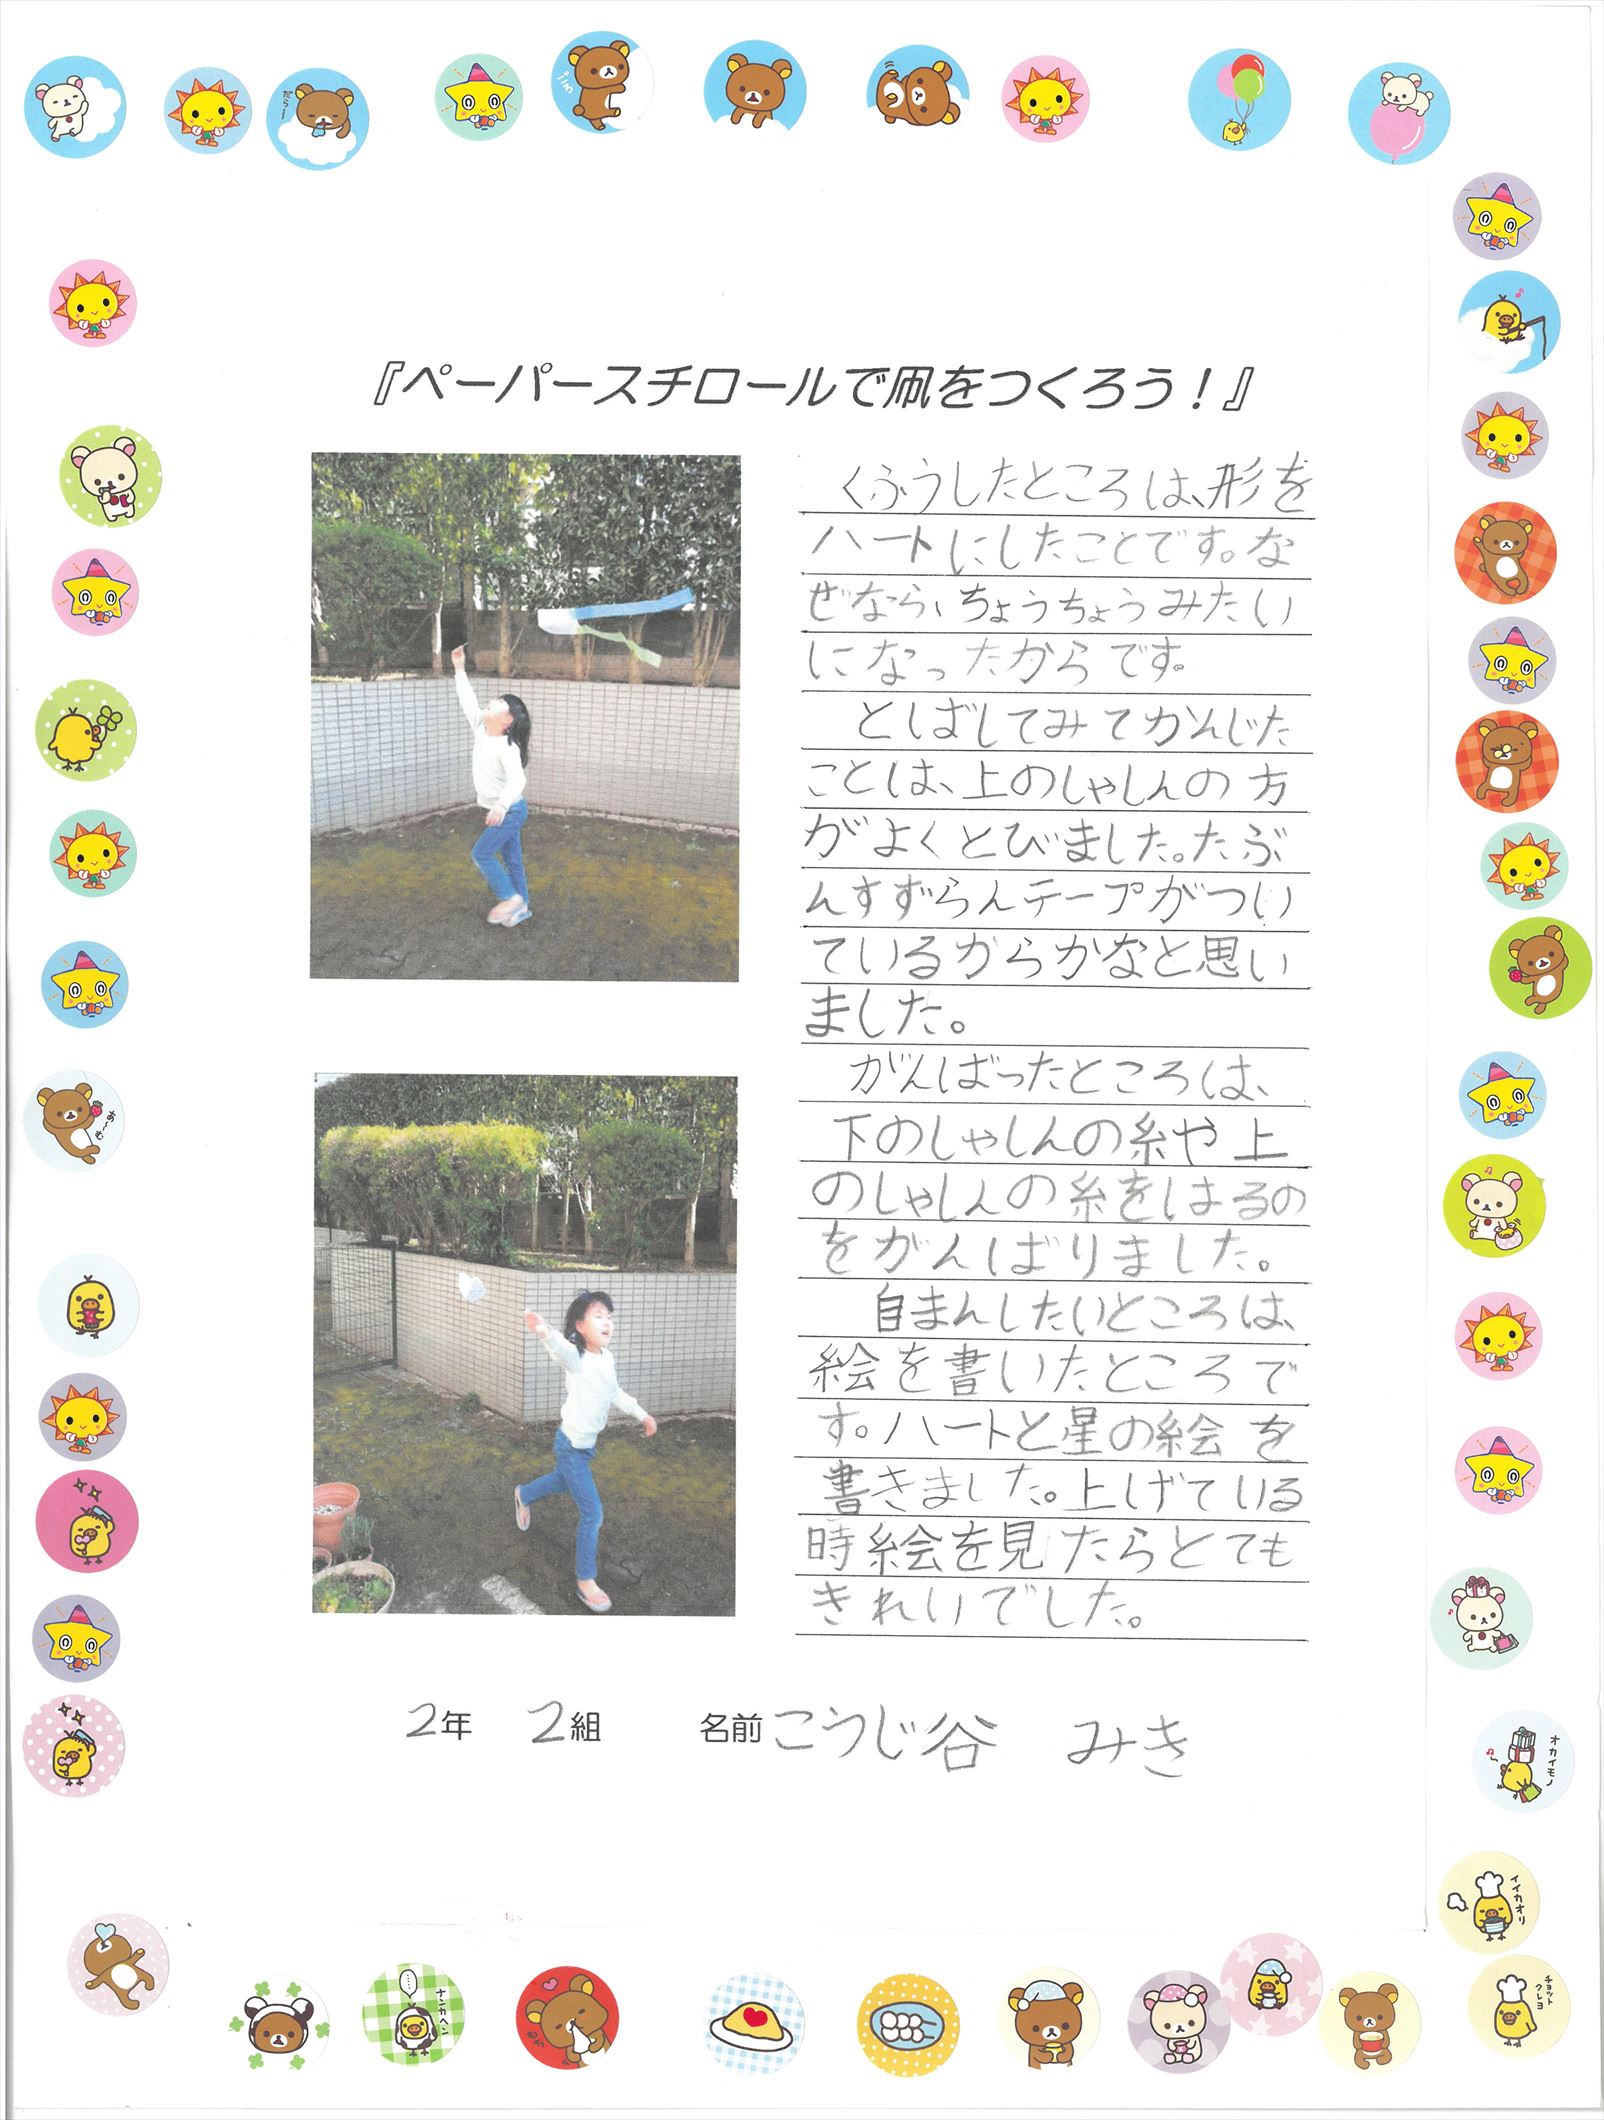 だら〜
『ペーパースチロールで凧をつくろう！』
くふうしたところは、形を
ハートにしたことです。な
ぜなら、ちょうちょうみたい
になったからです。
とばしてみてかんじた
ことは、上のしゃしんの方
がよくとびました。たぶ
んすずらんテープがつい
ているからかなと思い
ました。
がんばったところは、
下のしゃしんの糸や上
のしゃしんの糸をはるの
をがんばりました。
自まんしたいところは、
絵を書いたところで
す。ハートと星の絵を
書きました。上げている
時絵を見たらとても
きれいでした。
2年 2組 名前 こうじ谷 みき
オカイモノ
イイカオリ
チョット
クレヨ
ナンカヘン